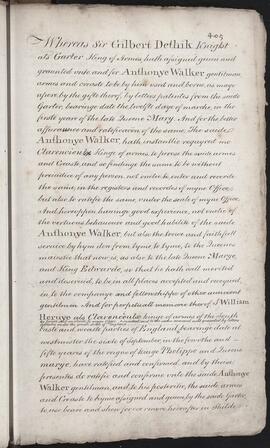 405
Whereas Sir Gilbert Dethik Knight
als Garter King of Armes, hath assigned geven and
graunted unto and for Anthonye Walker gentilman,
armes and creaste to be by him used and borne, as maye
apere by the gifte therof, by lettres patentes from the saide
Garter, bearinge date the twelfte daye of marche, in the
firste yeare of the late Quene Mary. And for the better
assurance and ratificacion of the same. The saide
Anthonye Walker, hath instantlie required me
Clarencieulx Kinge of armes, to peruse the saide armes
and Creaste, and so findinge the same to be without
prejudice of any person, not onelie to enter and recorde
the same, in the registers and recordes of myne Office,
but also to ratifie the same, under the seale of myne Office.
And hereuppon havinge good experience, not onelie of
the vertuous behaviour and good habilitie of the saide
Anthonye Walker, but also the true and faithfull
service by hym don from tyme to tyme, to the Quenes
maiestie that now is, as also to the late Quene Marye
and King Edwarde, so that he hath well merited
and deservid, to be in all places accepted and receyved,
in to the companye and fellowshippe of other auncient
gentilmen. And for perpetuall memorie therof I William
Hervye als Clarencieulx kinge of armes of the South
Easte and weaste parties of England bearinge date at
westminster the sixte of september, in the fourthe and
fifte yeares of the reigne of Kinge Philippe and Quene
marye, have ratified and confirmed, and by theise
presentes do ratifie and confirme unto the saide Anthonye
Walker gentilman, and to his posteritie, the saide armes
and Creaste to hym assigned and geven, by the saide Garter,
to use beare and shew for ever more hereafter in Shilde